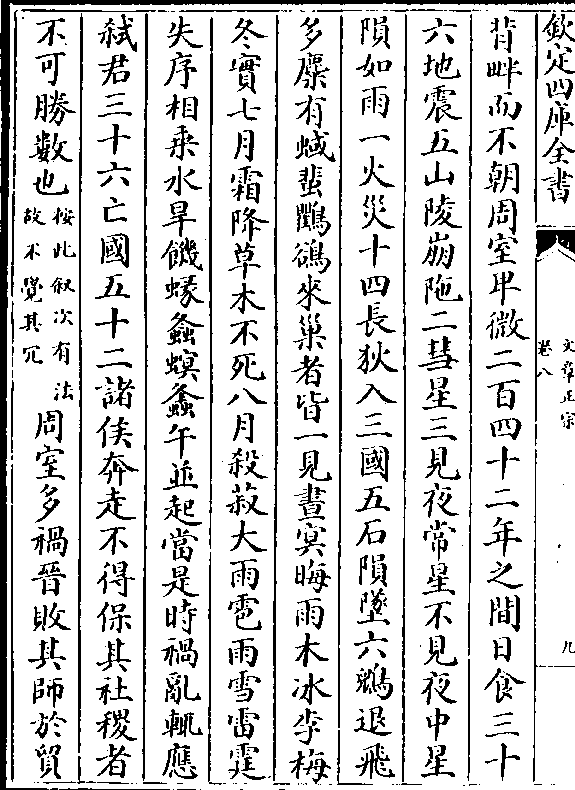 欽定四庫全書
文章正宗
卷八
九
背畔而不朝周室卑微二百四十二年之間日食三十
六地震五山陵崩阤二彗星三見夜常星不見夜中星
隕如雨一火災十四長狄入三國五石隕墜六鶂退飛
多麋有蜮蜚鸜鵒來巢者皆一見晝冥晦雨木冰李梅
冬實七月霜降草木不死八月殺菽大雨雹雨雪雷霆
失序相乘水旱饑蝝螽螟螽午並起當是時禍亂輒應
弑君三十六亡國五十二諸侯奔走不得保其社稷者
不可勝數也按此叙次有法故不覺其冗周室多禍晉敗其師於貿